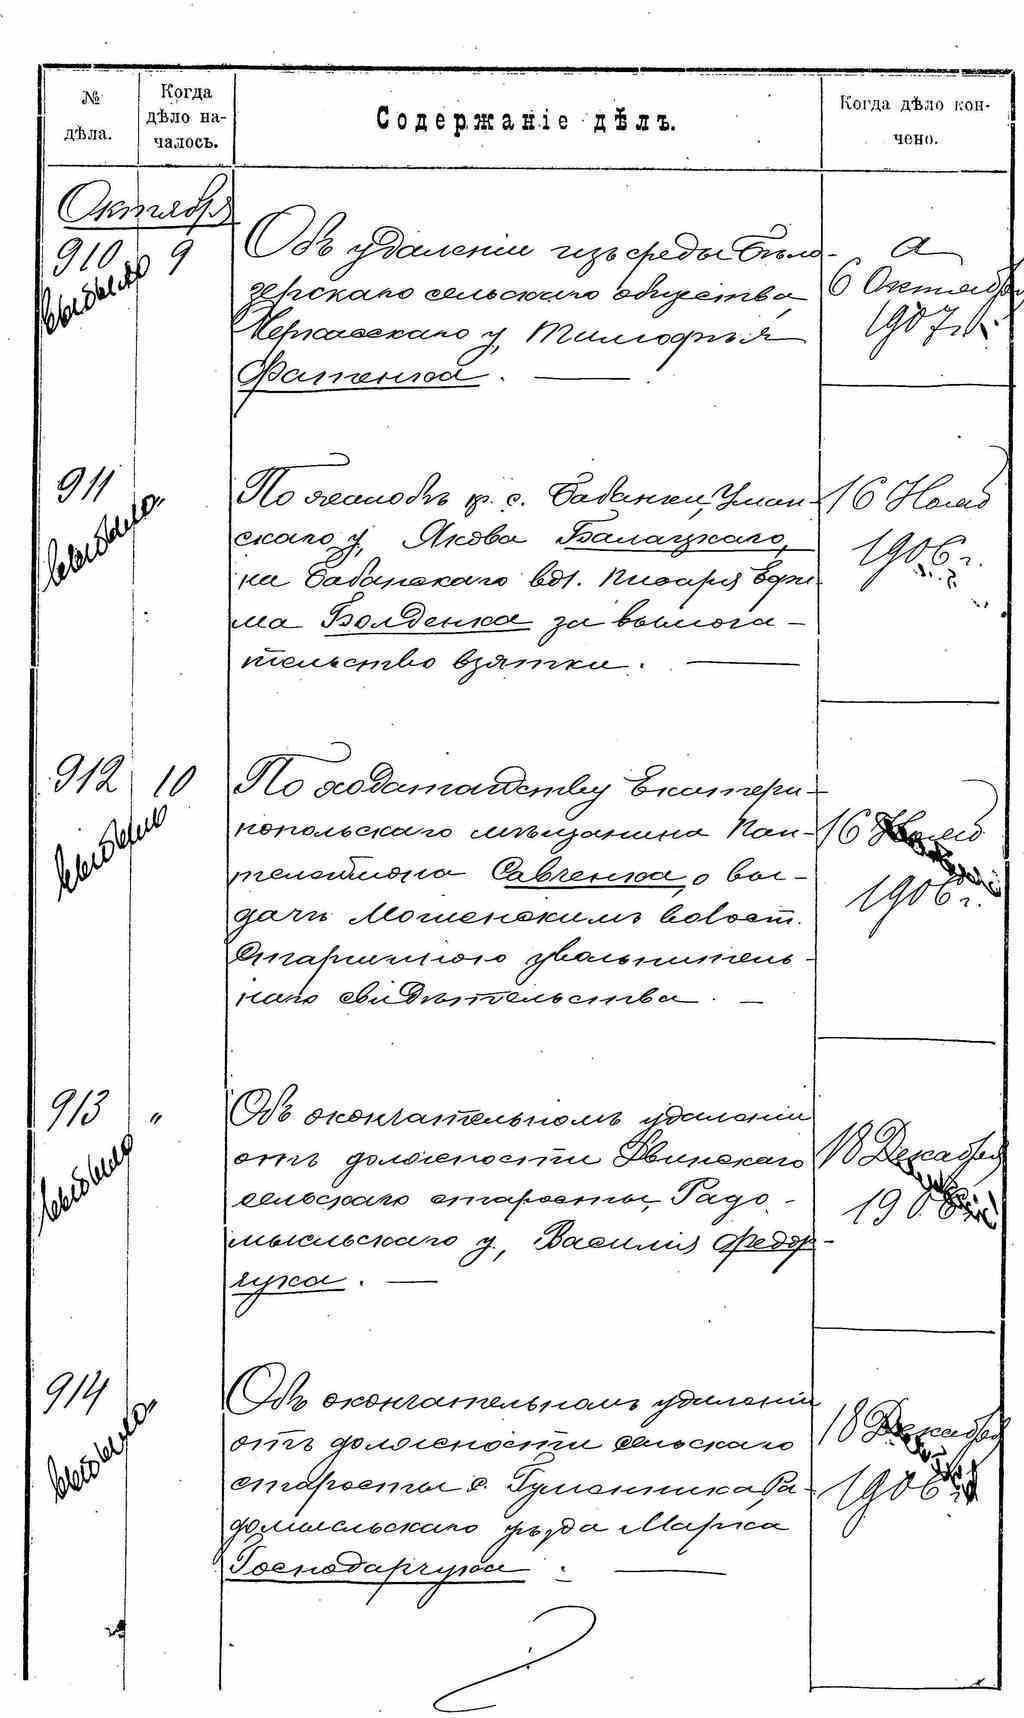 № дѣла.
Когда дѣло началось.
Содержаніе дѣлъ.
Когда дѣло кончено.
Октября
910
9
выбыло
Объ удаленіи изъ среды Бѣло-
зерскаго сельскаго общества,
Черкасскаго у, Тимофѣя
Фатенка.
6 Октября
1907 г.
911
выбыло
По жалобѣ кр. с. Бабанки, Уман-
скаго у, Якова Балацкаго,
на Бабанскаго вол. писаря Ефи
ма Болденка за вымога-
тельство взятки.
16 Нояб
1906 г.
912
10
выбыло
По ходатайству Екатери-
нопольскаго мѣщанина Пан-
телеймона Савченка, о вы-
дачѣ Мошенскимъ волост.
Старшиною увольнитель-
наго свидѣтельства. -
16 Нояб
1906 г.
913
"
выбыло
Объ окончательномъ удаленіи
отъ должности Двинскаго
сельскаго старосты, Радо-
мысльскаго у, Василія Федор-
чука.
18 Декабря
1906
914
выбыло
Объ окончательномъ удаленіи
отъ должности сельскаго
старосты с. Гуменника, Ра-
домысльскаго уѣзда Марка
Господарчука.
18 Декабря
1906 г.